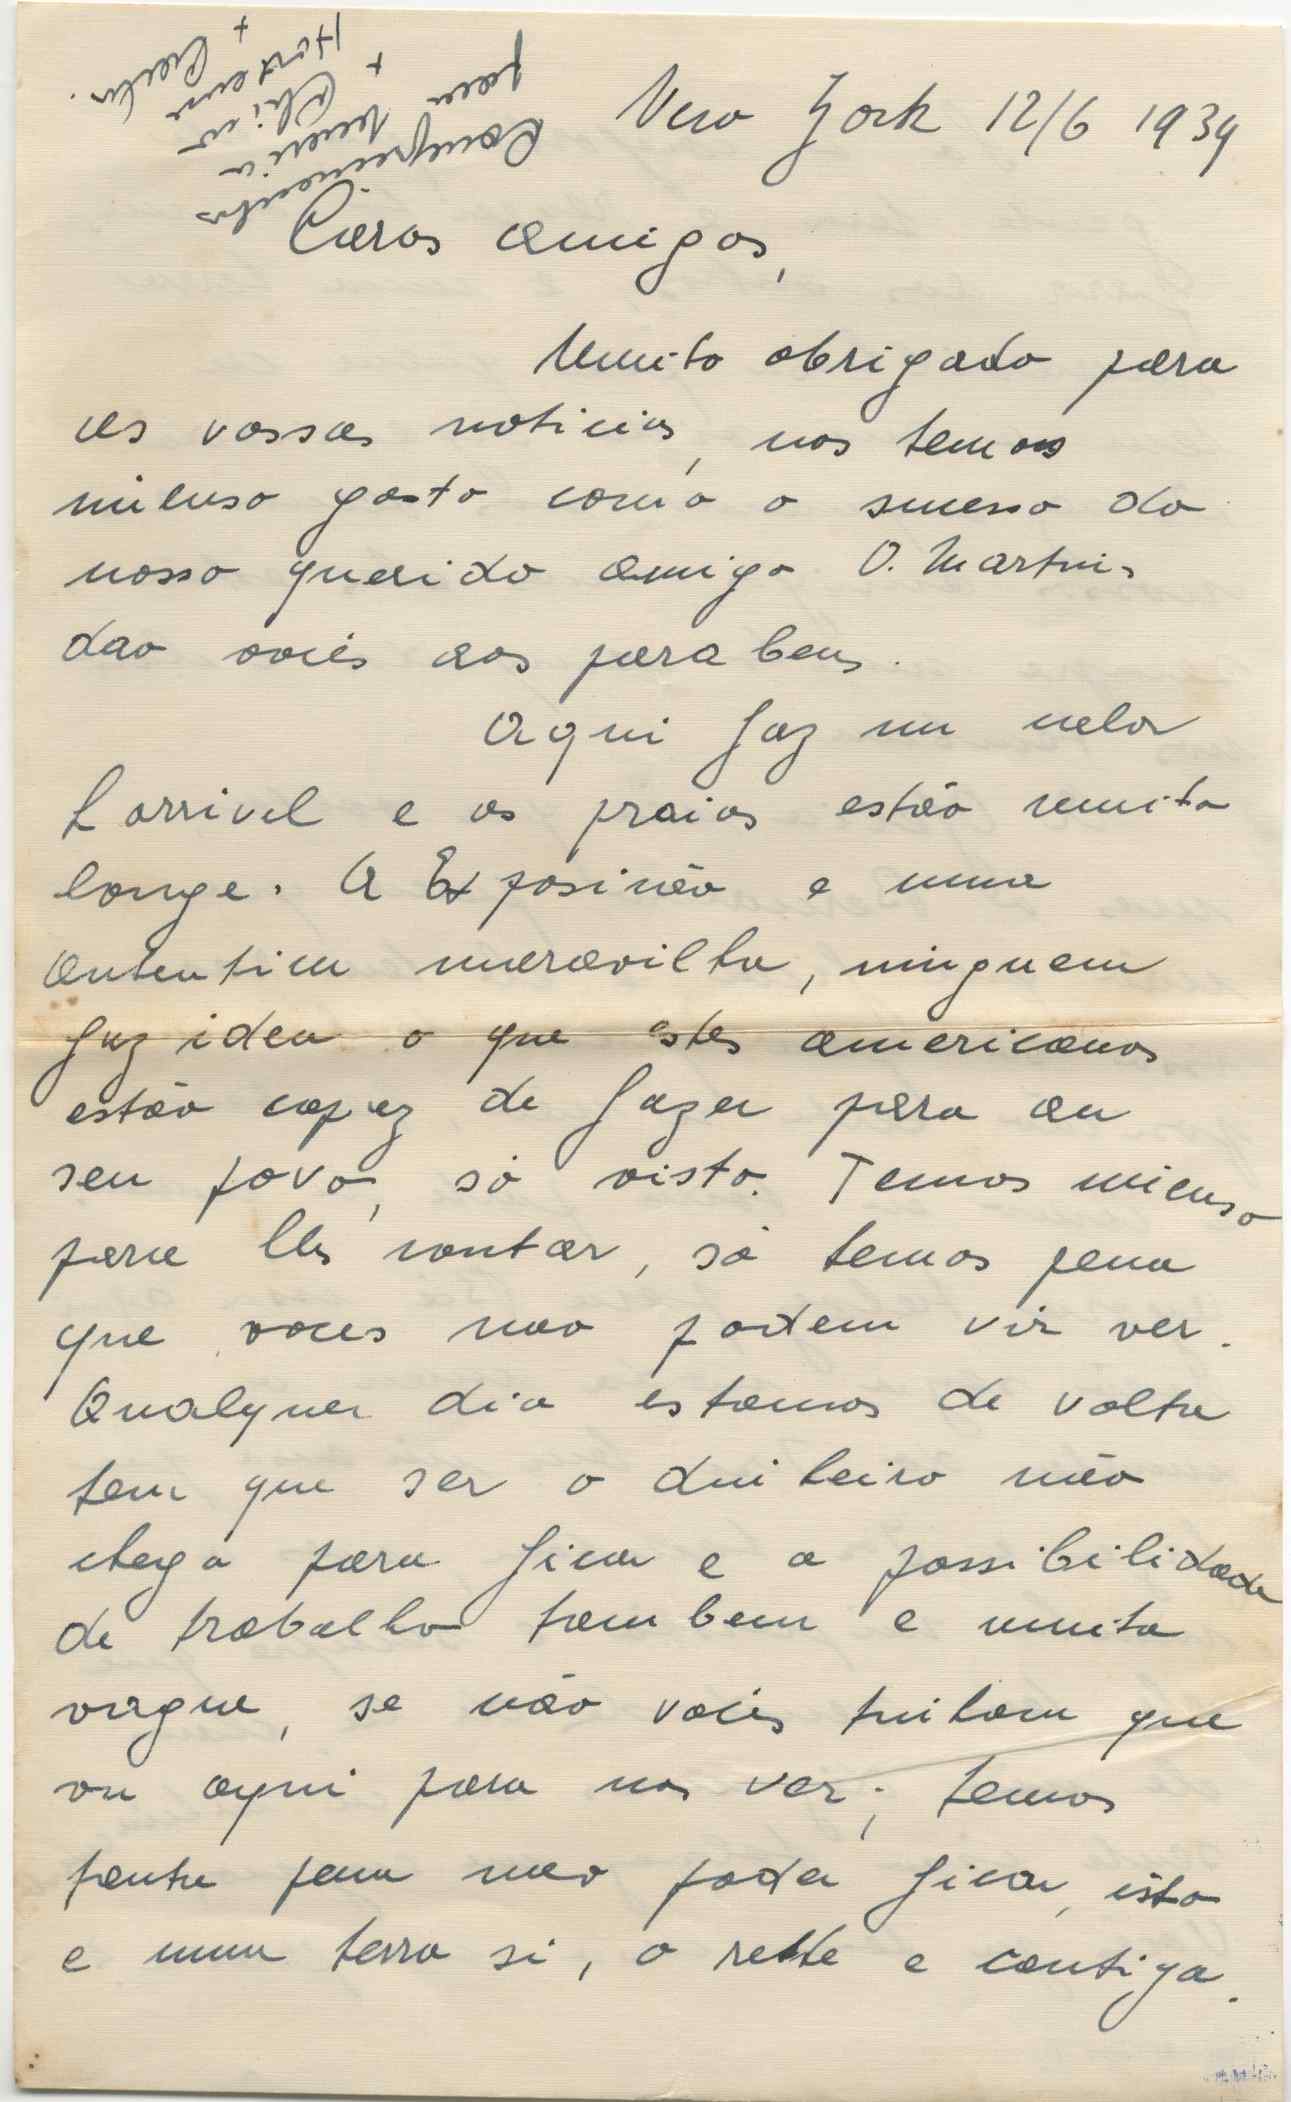 New York 12/6 1939
Comprimentos
para Maria
+ Chico
Hortense
+ Carlos.
Caros amigos,
Muito obrigado para
as vossas noticias, nos temos
imenso gosto como o sucesso do
nosso querido amigo O. Martins
dao voces aos parabens.
Aqui faz um calor
horrivel e as praias estão muito
longe. A Exposicão e uma
autentica maravilha, ninguem
faz idea o que estes americanos
estão capaz de fazer para au
seu povo, só visto. Temos imenso
para lhs contar, só temos pena
que voces nao podem vir ver.
Qualquer dia estamos de volta
tem que ser o dinheiro não
chega para ficar e a possibilidade
de trabalho tambem e muita
vague, se não vocês tinham que
vir aqui para nos ver; temos
tanta pena nao poder ficar, isto
e uma terra si, o reste e cantiga.